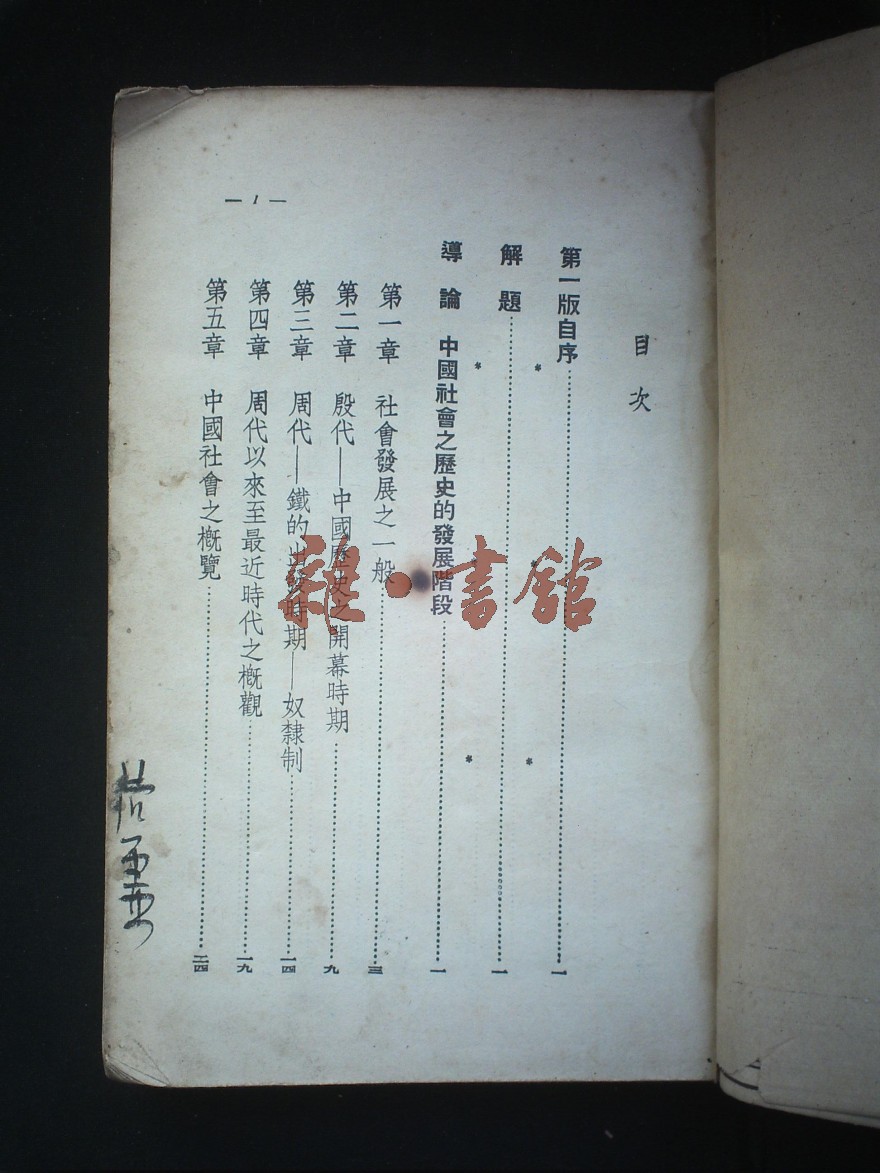 目次
第一版自序…一
解題…一
導論 中國社會之歷史的發展階段…一
第一章 社會發展之一般…三
第二章 殷代——中國歷史之開幕時期…九
第三章 周代——鐵的出發時期——奴隸制…一四
第四章 周代以來至最近時代之概觀…一九
第五章 中國社會之概覽…二四
— 1 —
雜·書館